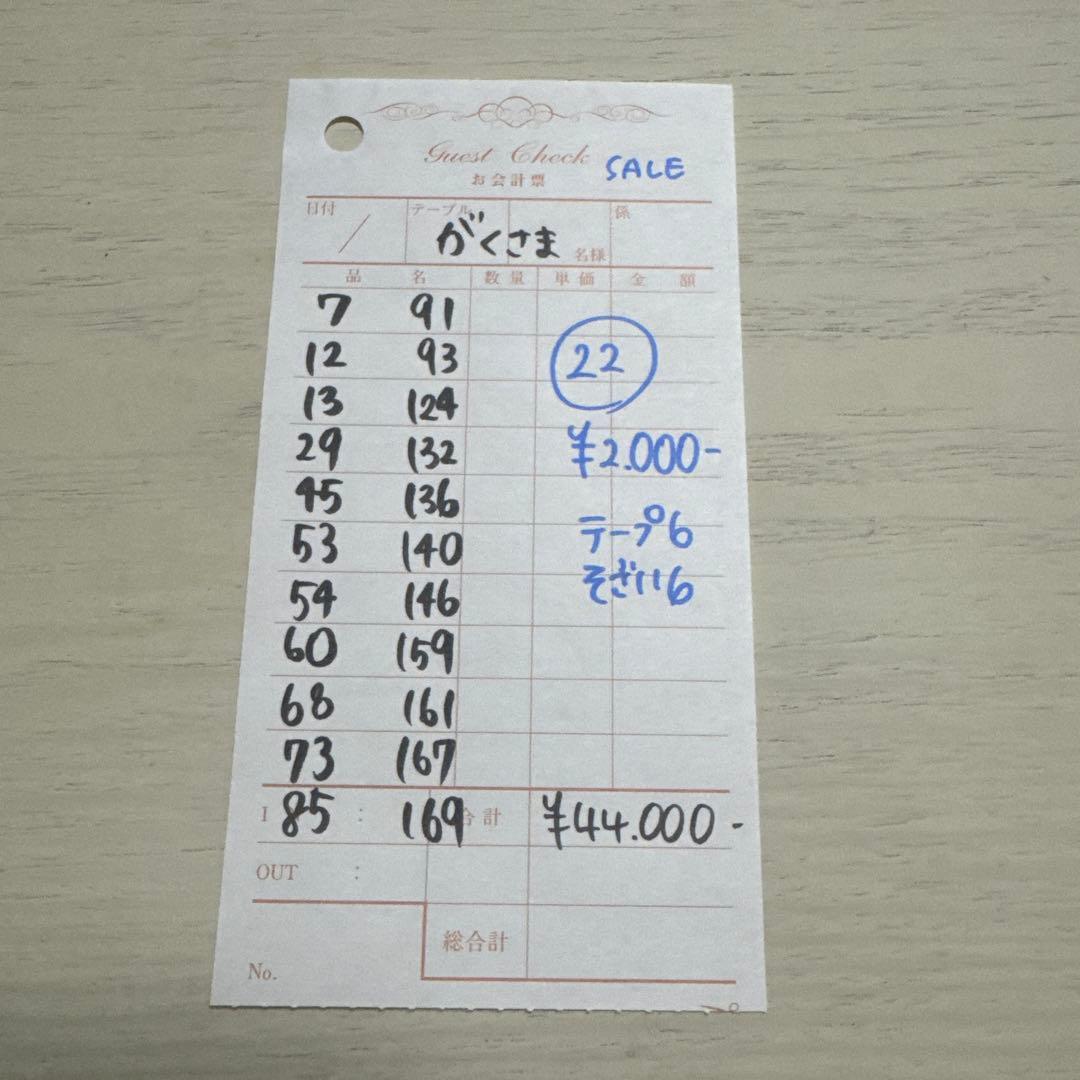 Guest Check SALE
お会計票
日付 / テーブル がくさま 名様 係
品 名 数量 単価 金 額
7 91
12 93 22
13 124
29 132 ¥2.000-
45 136
53 140 テープ6
54 146 そざい6
60 159
68 161
73 167
I 85 : 169 合計 ¥44.000-
OUT :
総合計
No.